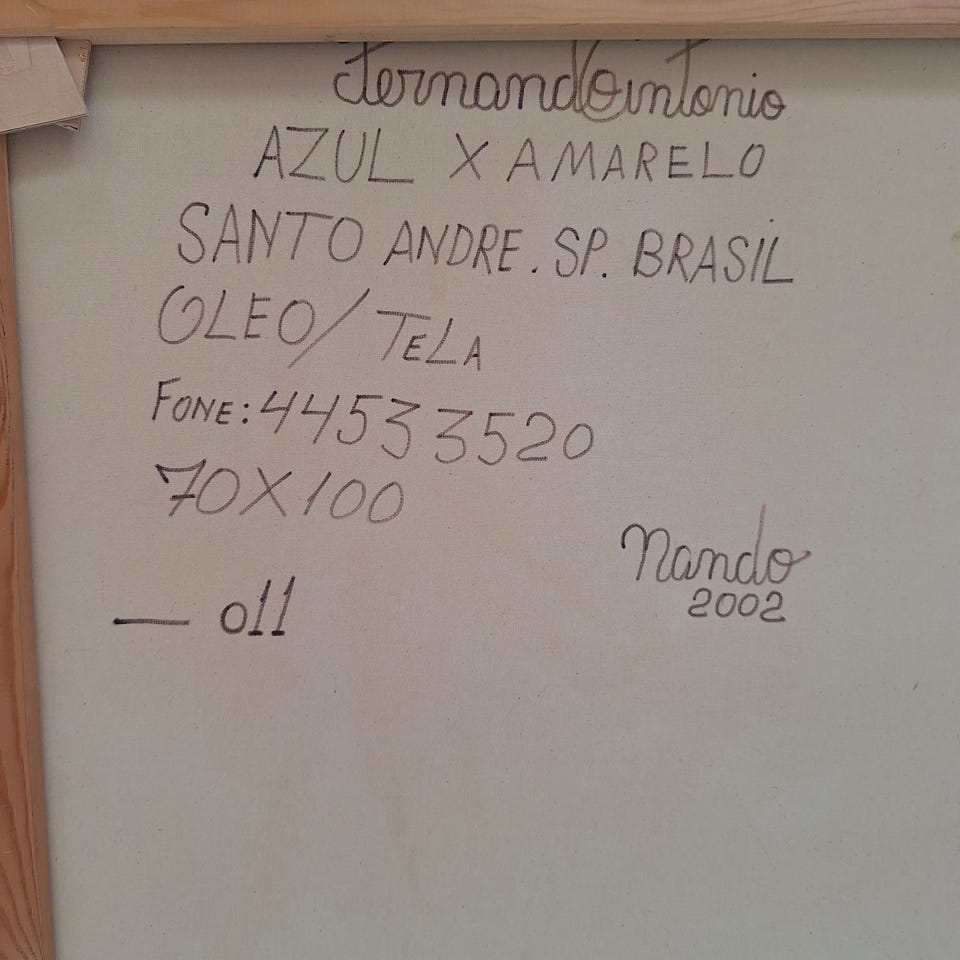 FernandoAntonio
AZUL X AMARELO
SANTO ANDRE. SP. BRASIL
OLEO/TELA
FONE: 44533520
70X100
Nando
— 011
2002